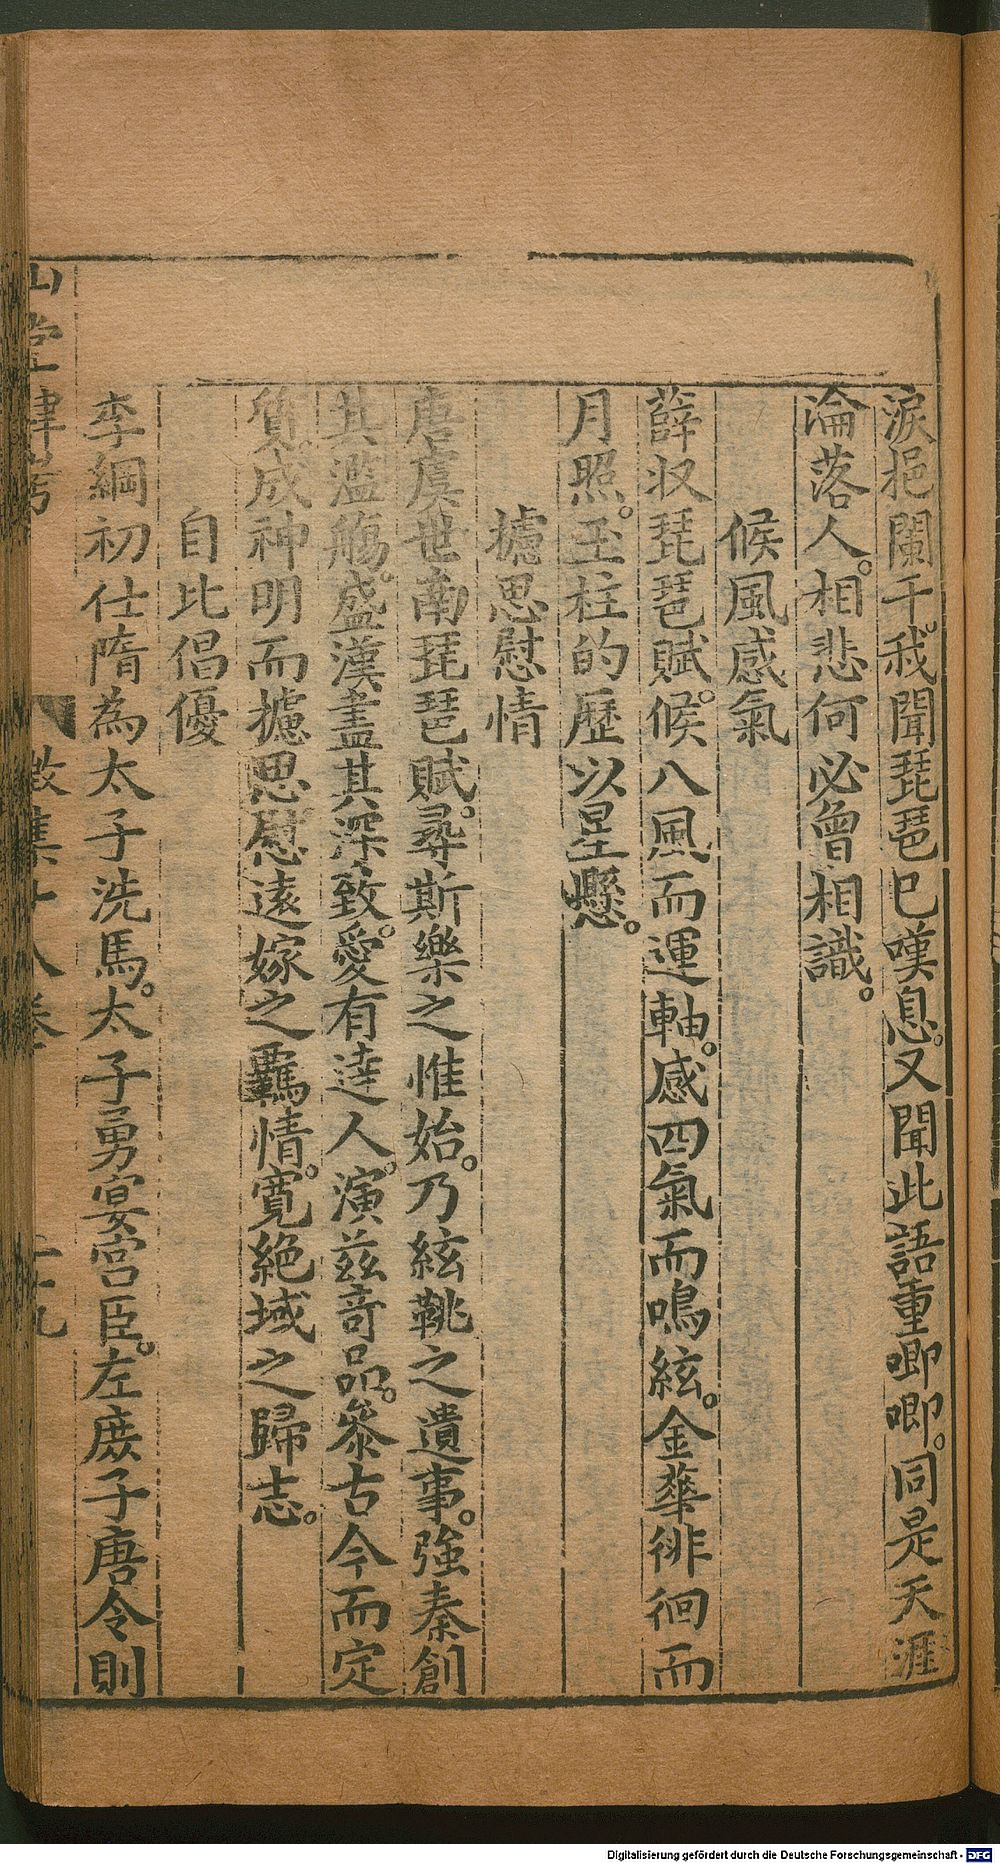 淚挹闌干。我聞琵琶已嘆息。又聞此語重唧唧。同是天涯
淪落人。相悲何必曾相識。
候風感氣
薛收琵琶賦。候八風而運軸。感四氣而鳴絃。金華徘徊而
月照。玉柱的歷以星懸。
攄思慰情
唐虞世南琵琶賦。尋斯樂之惟始。乃絃鞉之遺事。強秦創
其濫觴。盛漢盡其深致。愛有逹人。演茲奇品。參古今而定
質。成神明而攄思。慰遠嫁之羈情。寬絶域之歸志。
自比倡優
李綱初仕隋為太子洗馬。太子勇宴宮臣。左庶子唐令則
山堂肆考
徵集十八卷
二十九
Digitalisierung gefördert durch die Deutsche Forschungsgemeinschaft - DFG